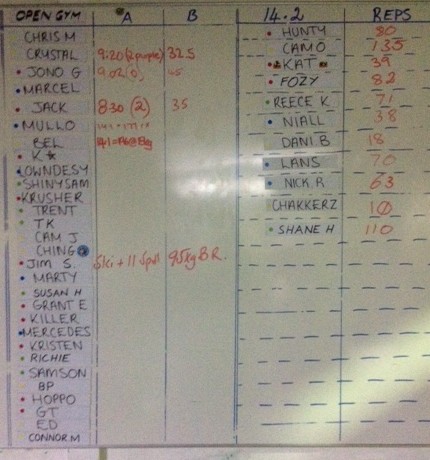 OPEN GYM A B 14.2 REPS
CHRIS M
CRYSTAL 9:20 (2 purple) 32.5
JONO G 9.02
MARCEL
JACK 8:30 (2) 35
MULLO
BEL
K
LOWNDESY
SHINY SAM
KRUSHER
TRENT
TK
CAM J
CHING
JIM S. 5ki + 11 95kg B R.
MARTY
SUSAN H
GRANT E
KILLER
MERCEDES
KRISTEN
RICHIE
SAMSON
BP
HOPPO
GT
ED
CONNOR M
HUNTY 80
CAM O 135
KAT 39
FOZY 82
REECE K 71
NIALL 38
DANI B 18
LANS 70
NICK R 63
CHAKKERZ
SHANE H 110